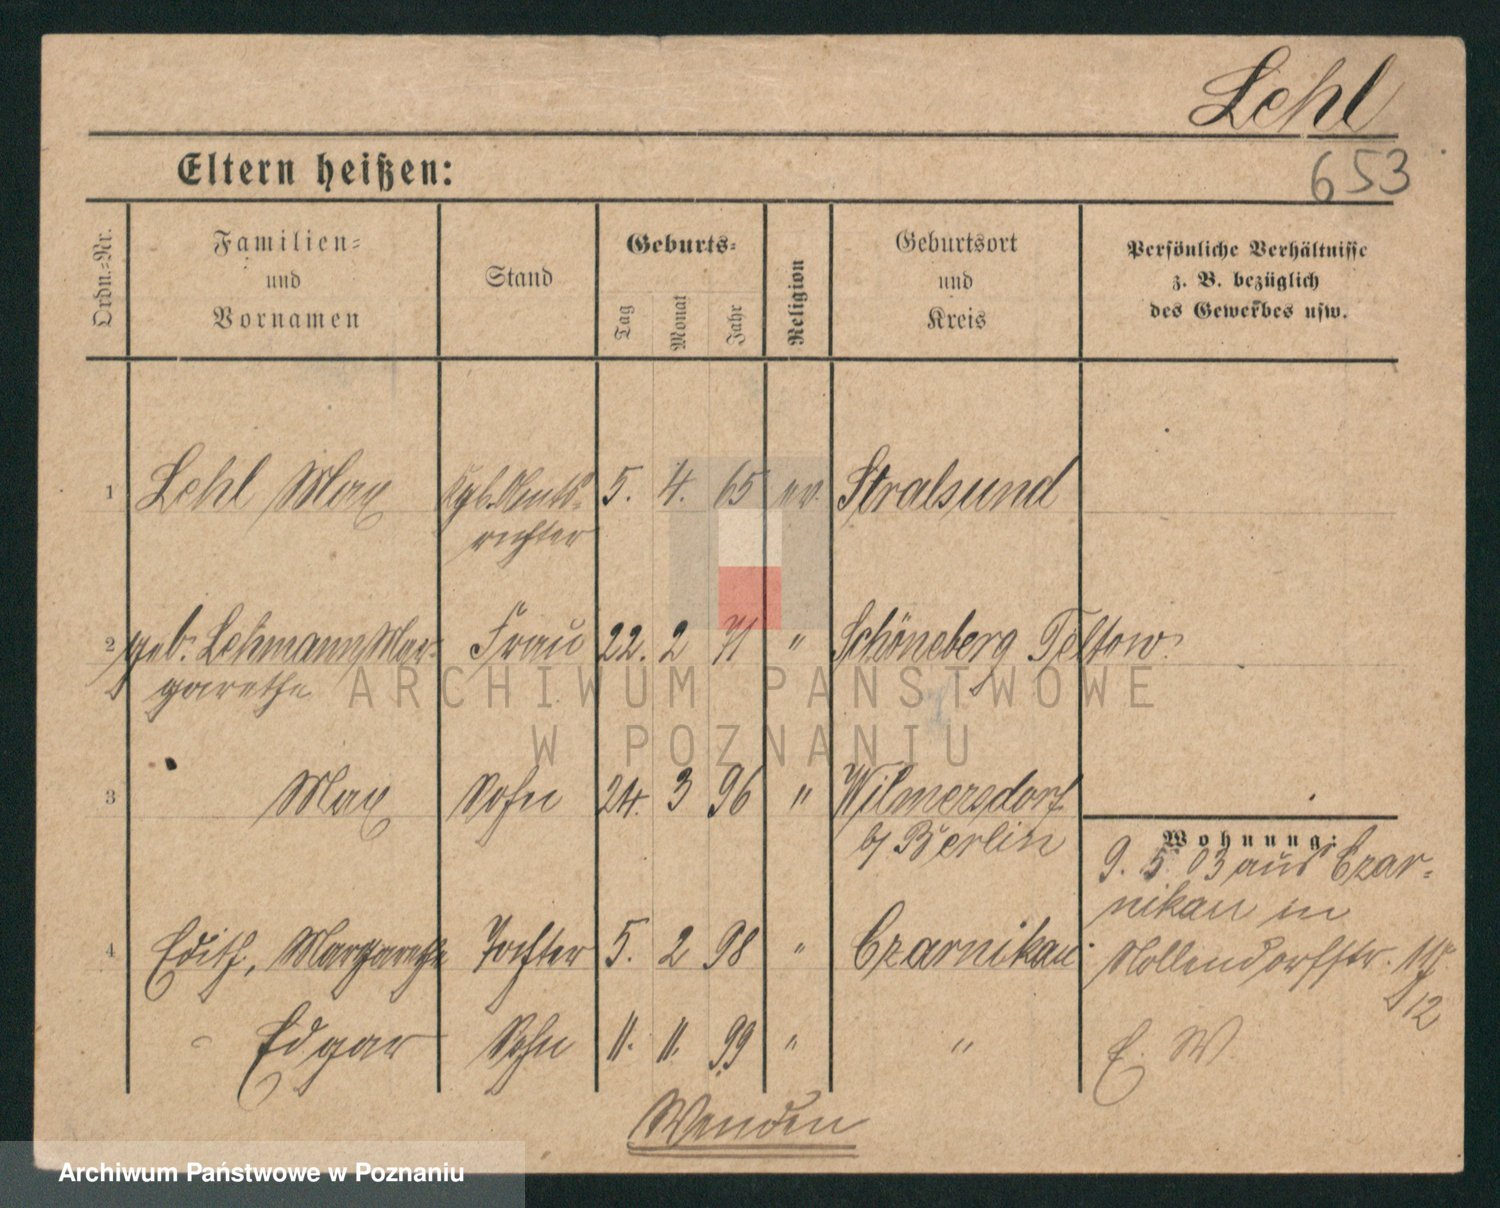 Lehl
Eltern heißen:
653
Ordn.-Nr.
Familien-
und
Vornamen
Stand
Geburts-
Tag
Monat
Jahr
Religion
Geburtsort
und
Kreis
Persönliche Verhältnisse
z. B. bezüglich
des Gewerbes usw.
1 Lehl Max Kgl. Amts- 5. 4. 65 ev. Stralsund
richter
2 geb. Lehmann, Mar- Frau 22. 2 71 " Schöneberg Teltow
garethe
ARCHIWUM PAŃSTWOWE
W POZNANIU
3 Max Sohn 24. 3 96 " Wilmersdorf
b/ Berlin
Wohnung:
9. 5. 03 aus Czar-
nikau in
4 Edith, Margarethe Tochter 5. 2 98 " Czarnikau
Nollendorfstr.
12
Edgar Sohn 11. 11. 99 " "
E. W.
Wenden
Archiwum Państwowe w Poznaniu